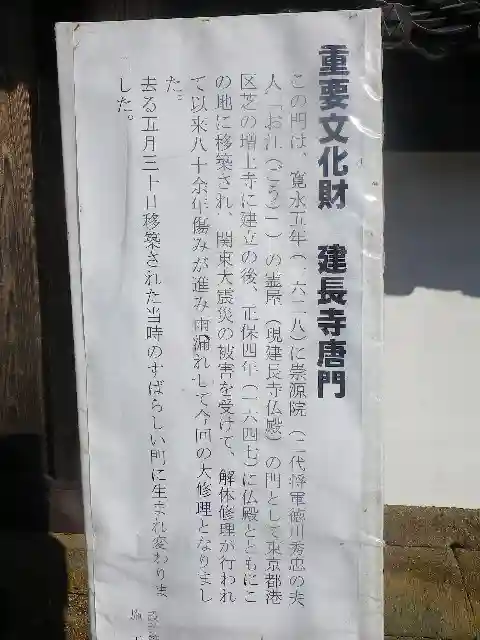 重要文化財　建長寺唐門
この門は、寛永五年（一六二八）に崇源院（二代将軍徳川秀忠の夫
人「お江（ごう）」）の霊屋（現建長寺仏殿）の門として東京都港
区芝の増上寺に建立の後、正保四年（一六四七）に仏殿とともにこ
の地に移築され、関東大震災の被害を受けて、解体修理が行われ
て以来八十余年傷みが進み雨漏れして今回の大修理となりまし
た。
去る五月三十日移築された当時のすばらしい門に生まれ変わりま
した。